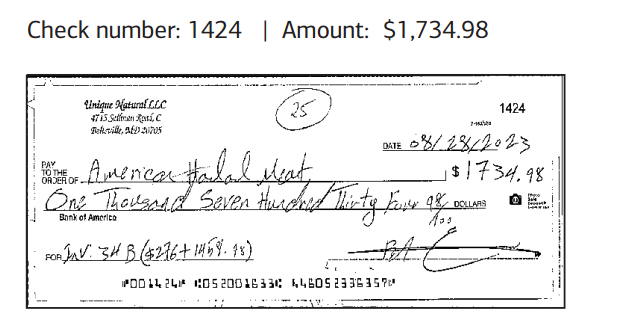 Check number: 1424 | Amount: $1,734.98
Unique Natural LLC
4715 Sellman Road, C
Beltsville, MD 20705
25
1424
DATE 08/28/2023
PAY TO THE ORDER OF American Halal Meat $1734.98
One Thousand Seven Hundred Thirty Four 98/100 DOLLARS
Bank of America
FOR Inv. 34 B ($276+1459.98)